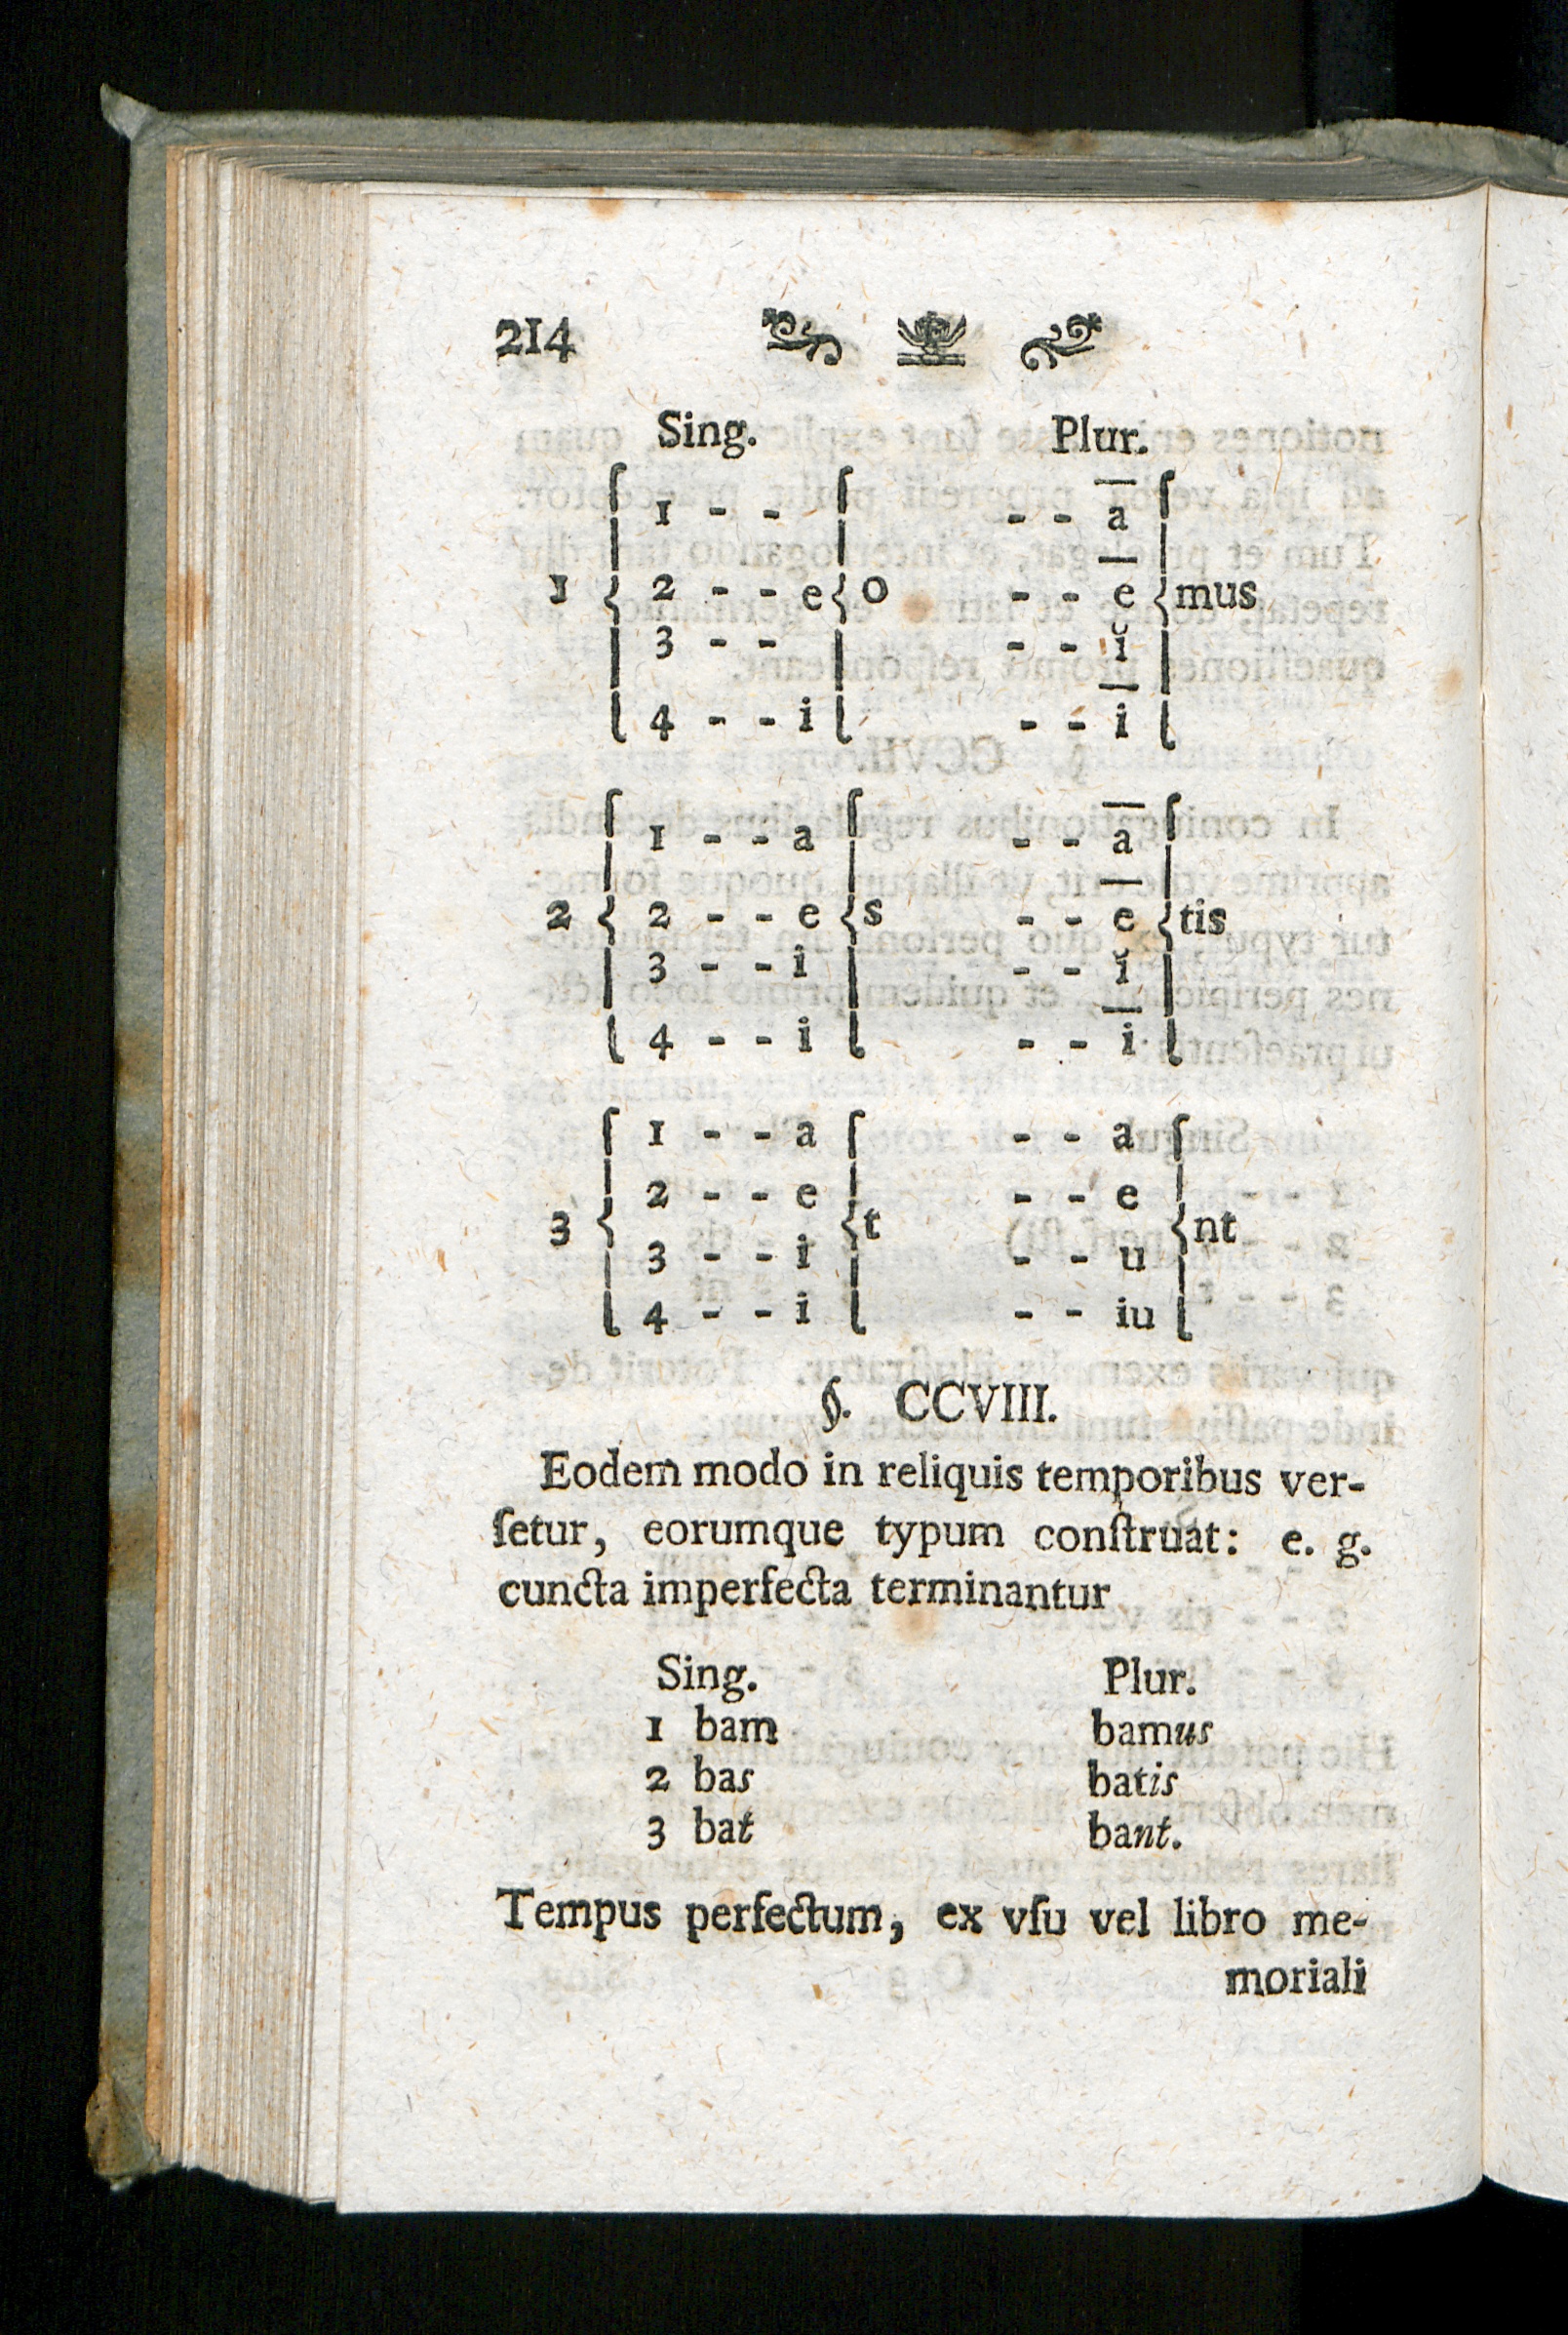 214
Sing. Plur.
1 - - - - ā
1 { 2 - - e { o - - ē { mus
3 - - - - ĭ
4 - - i - - ī
1 - - a - - ā
2 { 2 - - e { s - - ē { tis
3 - - i - - ĭ
4 - - i - - ī
1 - - a - - a
2 - - e - - e
3 { { t { nt
3 - - i - - u
4 - - i - - iu
§. CCVIII.
Eodem modo in reliquis temporibus ver-
ſetur, eorumque typum conſtruat: e. g.
cuncta imperfecta terminantur
Sing. Plur.
1 bam bamus
2 bas batis
3 bat bant.
Tempus perfectum, ex vſu vel libro me-
moriali